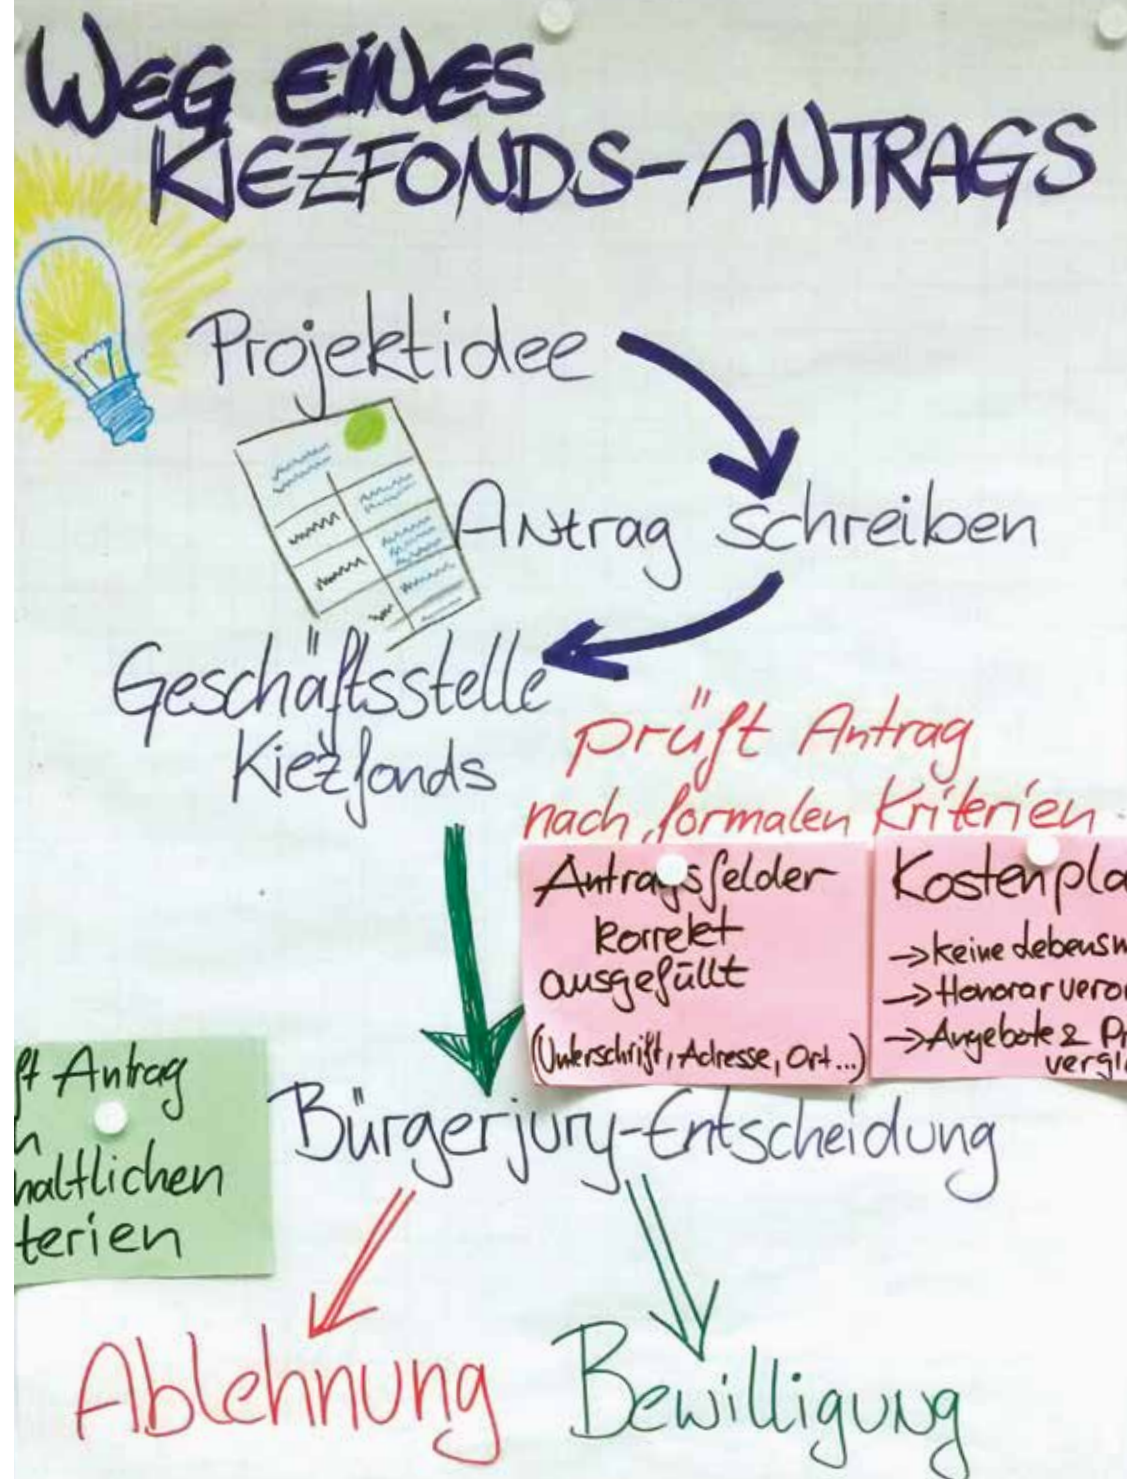 WEG EINES
KIEZFONDS-ANTRAGS
Projektidee
Antrag schreiben
Geschäftsstelle
Kiezfonds
prüft Antrag
nach formalen Kriterien
Antragsfelder
korrekt
ausgefüllt
(Unterschrift, Adresse, Ort...)
Kostenpla
→ keine Lebensm
→ Honorarveror
→ Angebote & Pr
vergl
ft Antrag
haltlichen
terien
Bürgerjury-Entscheidung
Ablehnung
Bewilligung